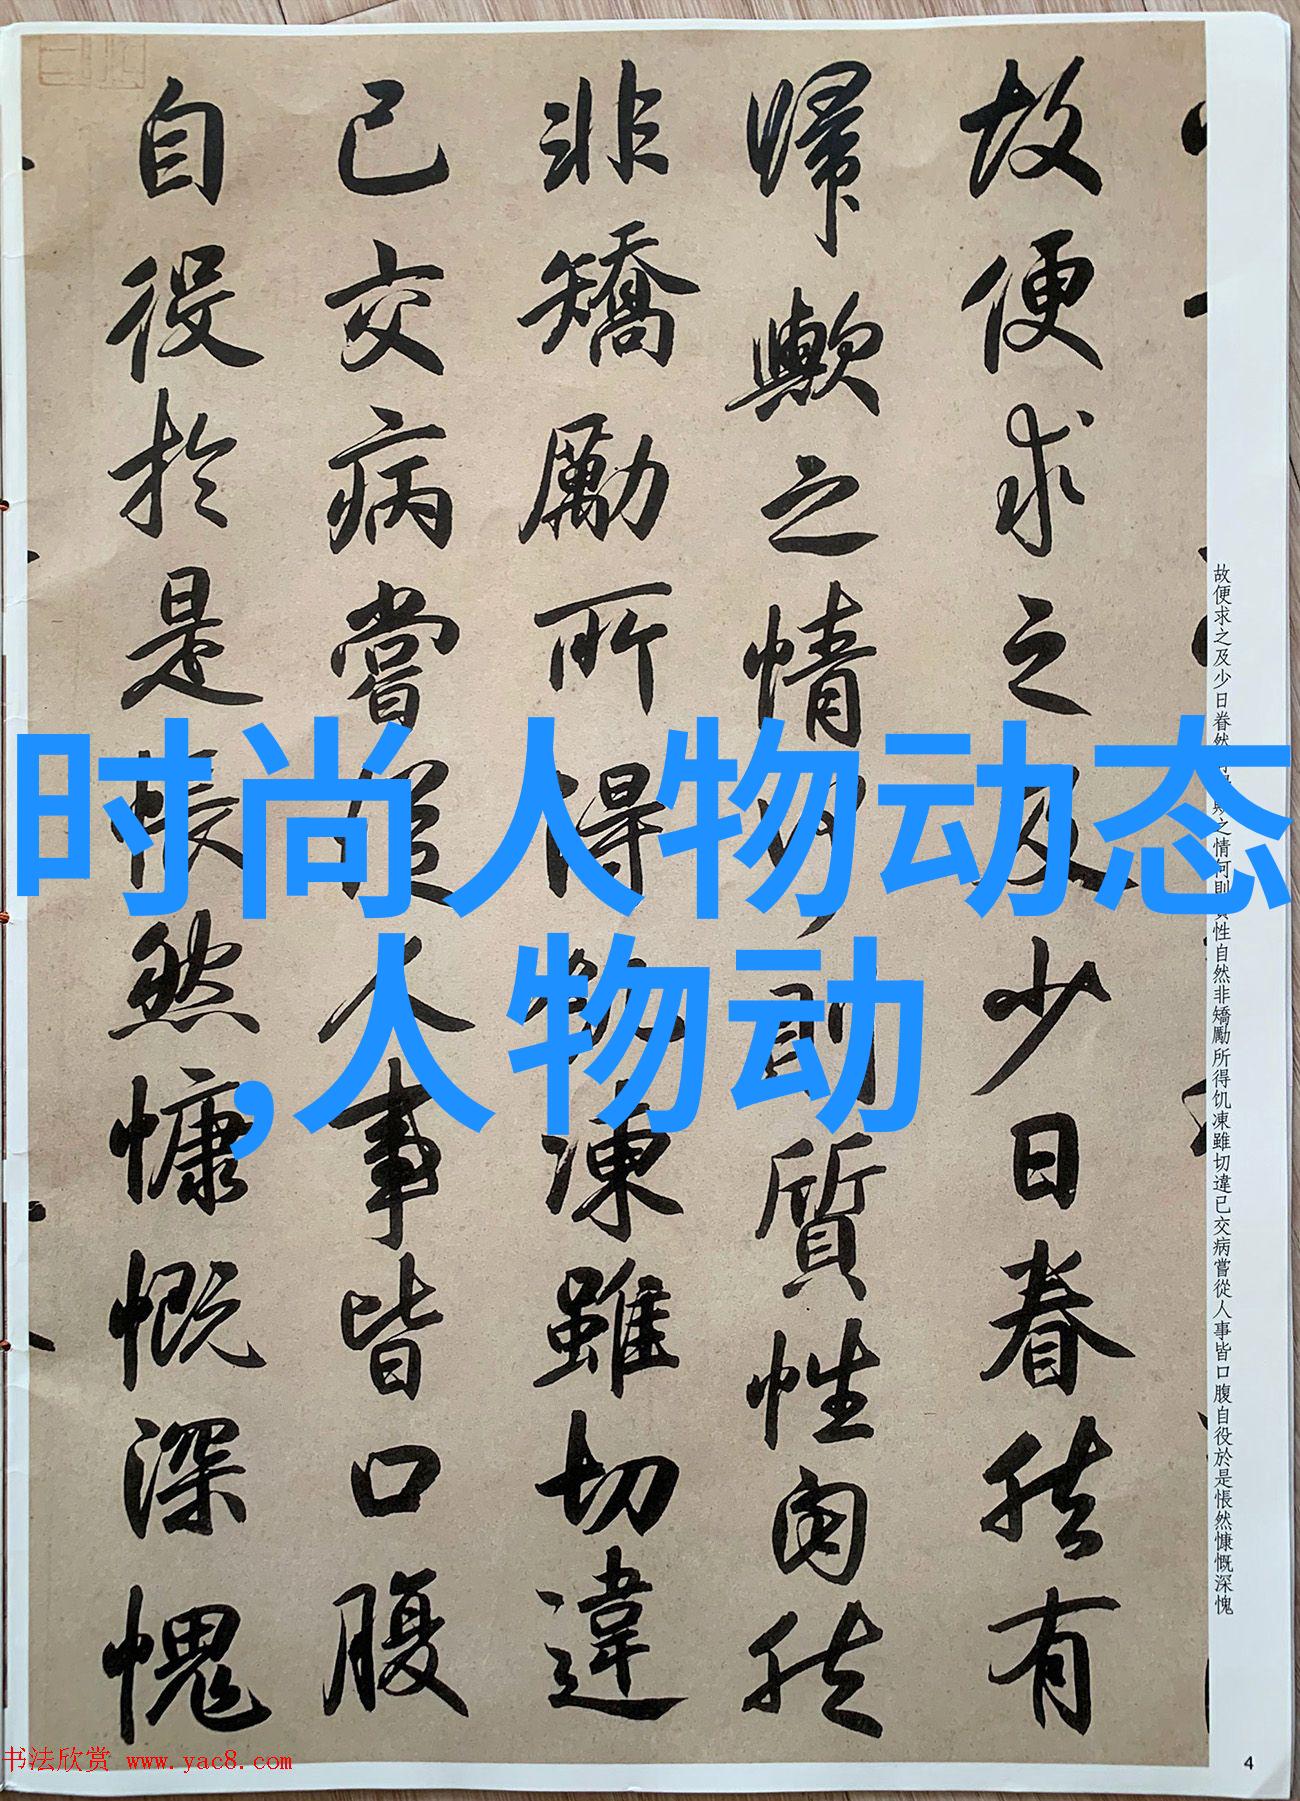 故便求之及少日眷然有
歸歟之情何則質性自然
非矯勵所得飢凍雖切違
已交病嘗從人事皆口腹
自役於是悵然慷慨深愧
故便求之及少日眷然之情何則質性自然非矯勵所得饥凍雖切違已交病嘗從人事皆口腹自役於是悵然慷慨深愧
时尚人物动态
,人物动
书法欣赏 www.yac8.com
4